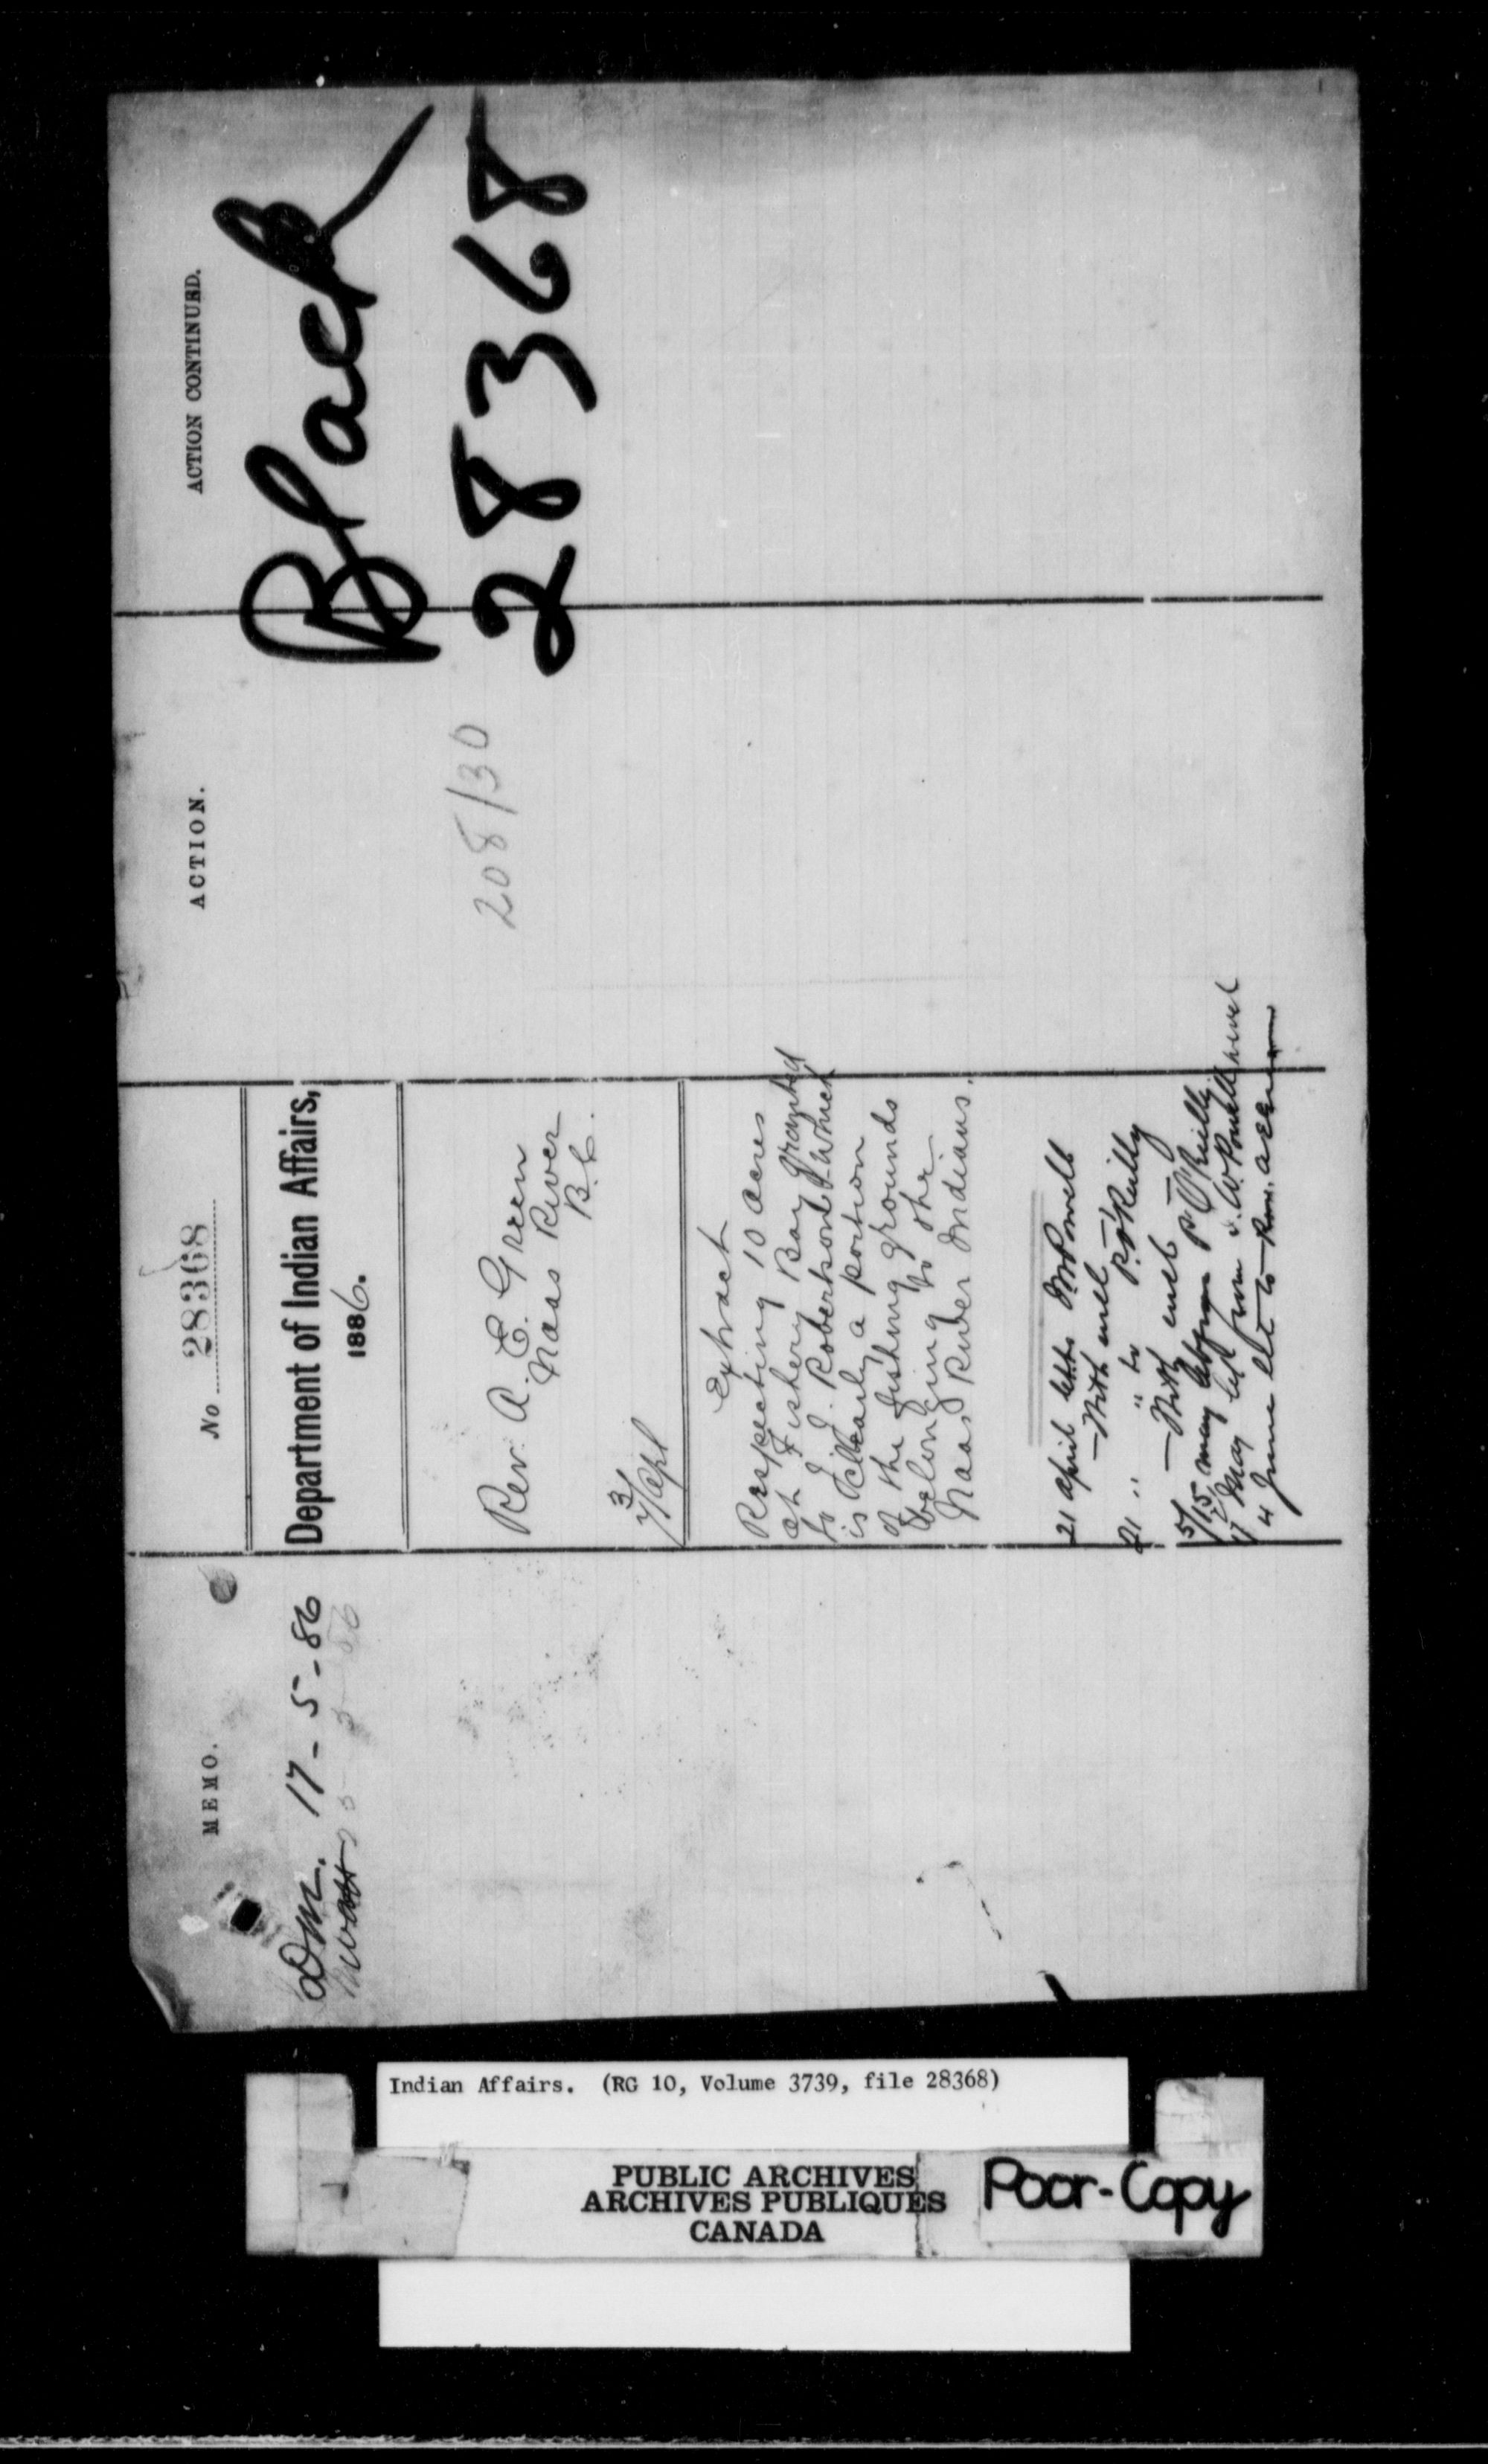 MEMO.
17-5-86
No 28368
Department of Indian Affairs,
1886.
Rev. A. E. Green
Naas River
B.C.
3/7 Apl
Extract
Respecting 10 acres
at Fishery Bay granted
to J. J. Robertson & which
is clearly a portion
of the fishing grounds
belonging to the
Naas River Indians.
21 April let to Powell
— With encl —
21 " " to P. O'Reilly
— With encl —
5/15 May let from P. O'Reilly
17 May let from I. W. Powell
4 June let to
ACTION.
208/30
ACTION CONTINUED.
Black
28368
Indian Affairs. (RG 10, Volume 3739, file 28368)
PUBLIC ARCHIVES
ARCHIVES PUBLIQUES
CANADA
Poor-Copy